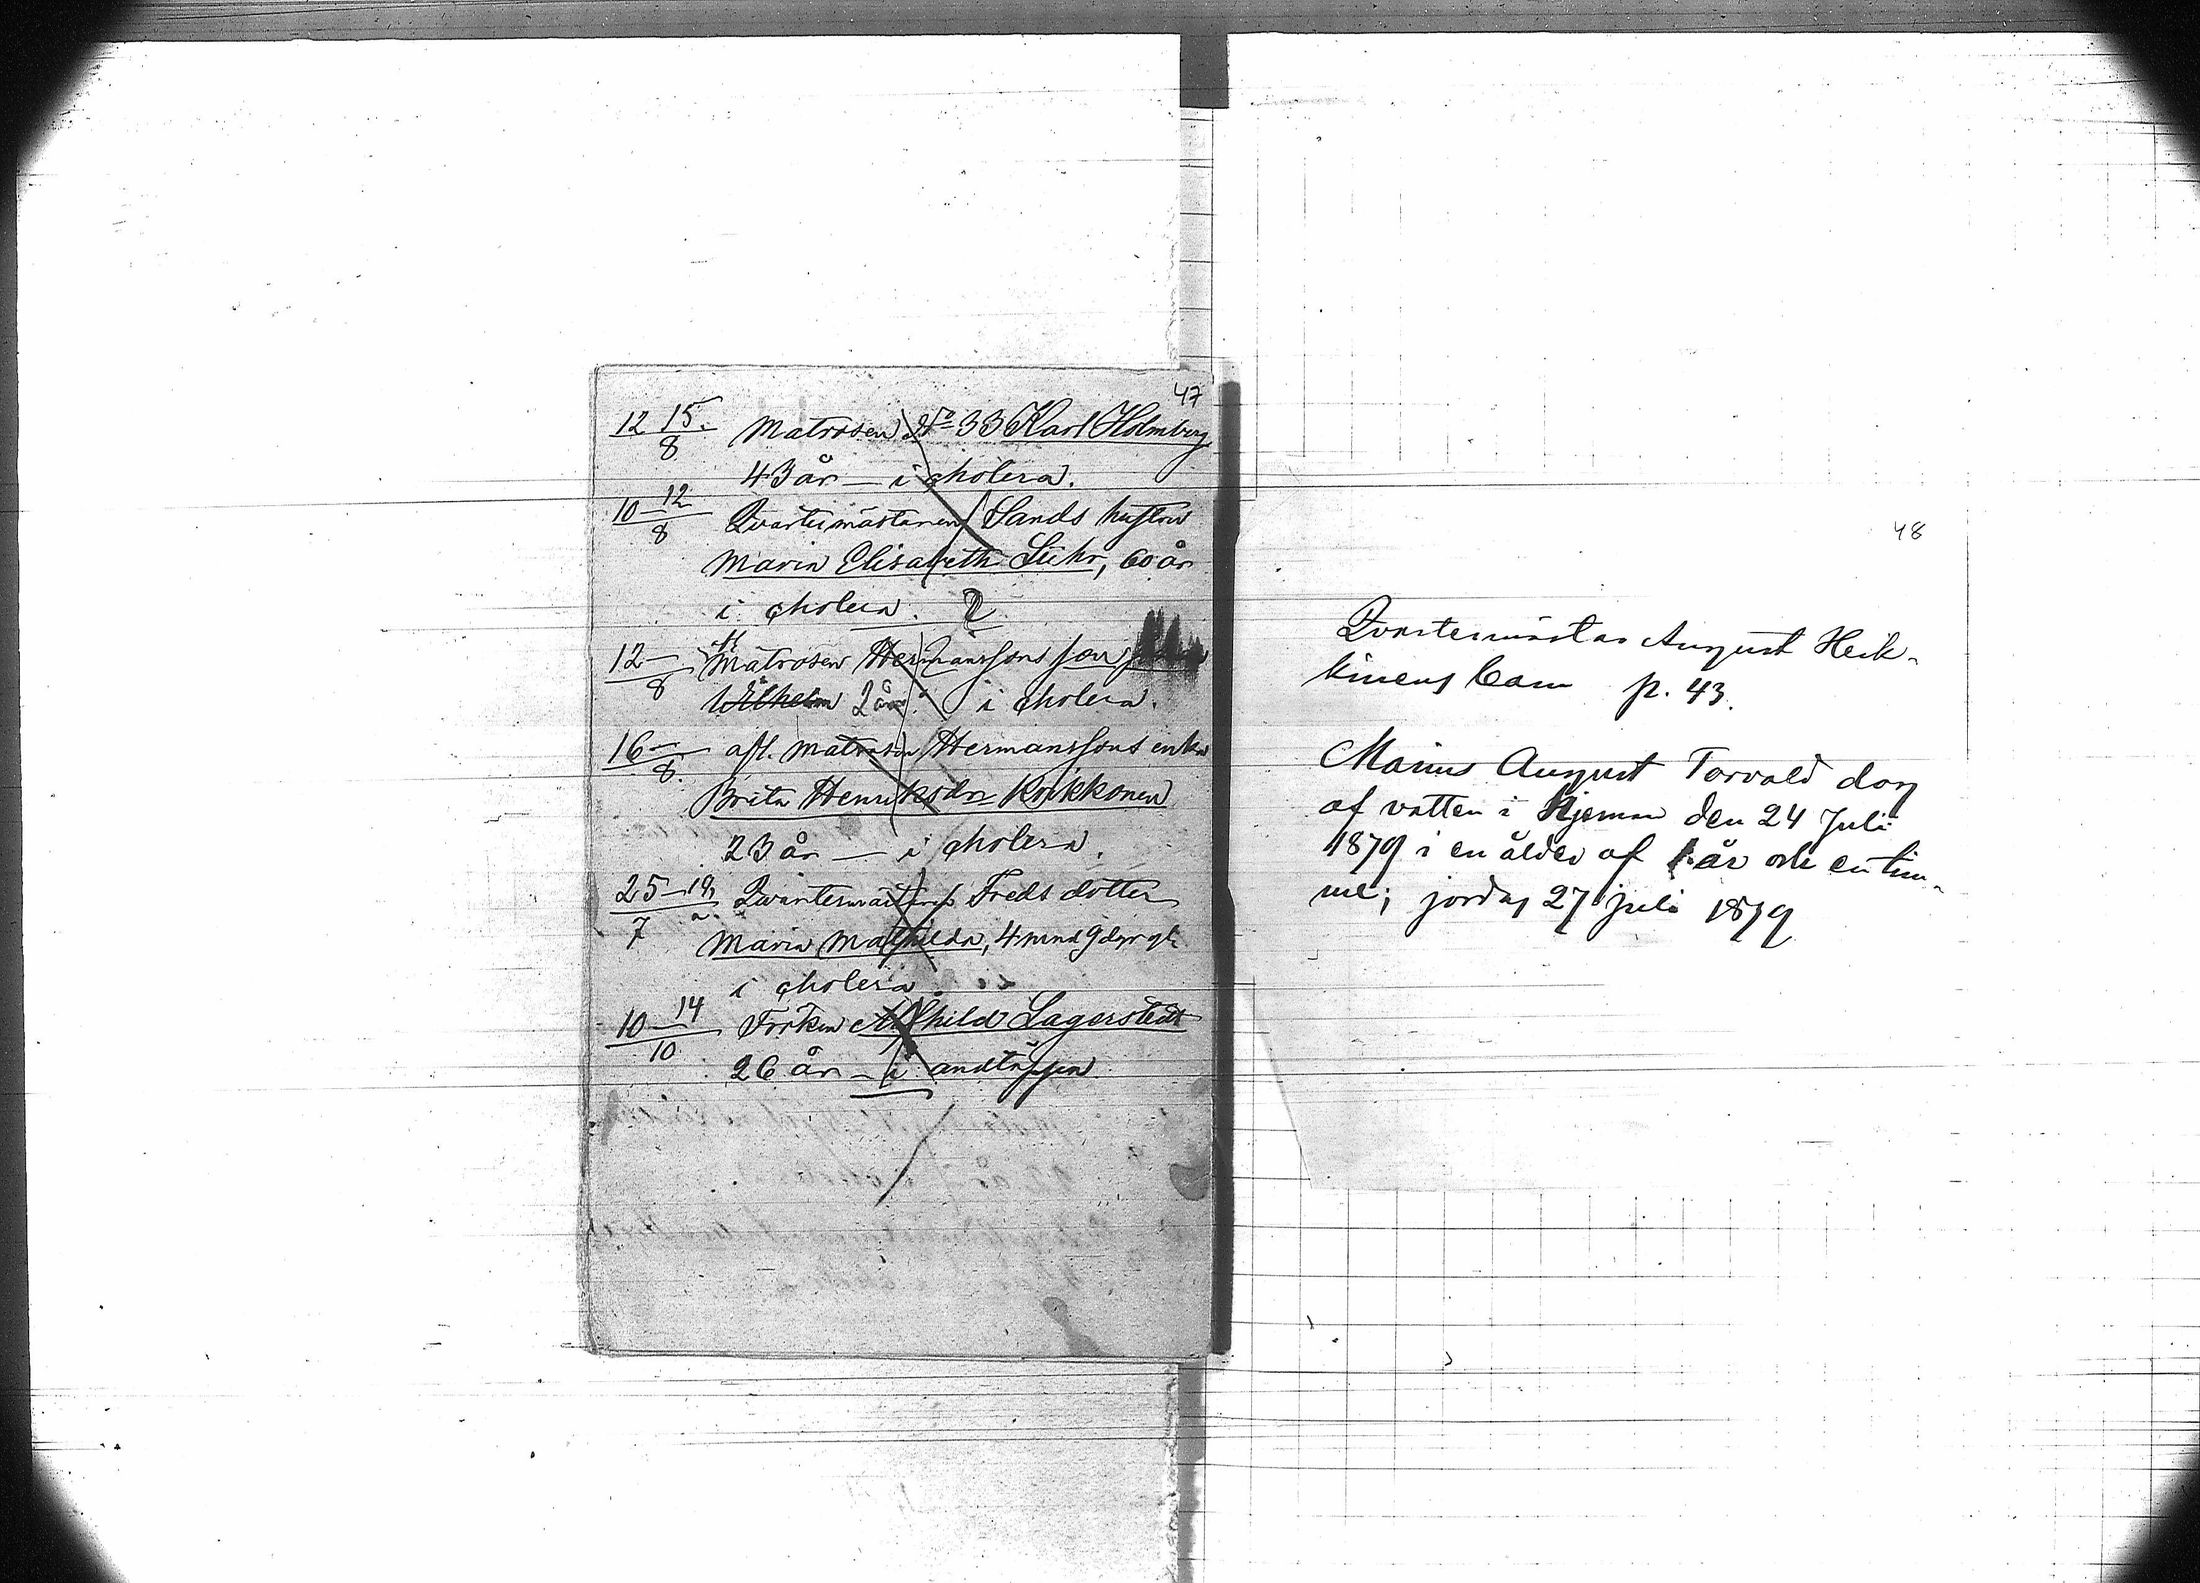 47
12 15/8 Matrosen No 33 Karl Holmberg
43 år — i cholera.
10–12/8 Qvartermästaren Sands hustru
Maria Elisabeth Lühr, 60 år
i cholera. 2
12–/8 Matrosen Hermanssons son
Wilhelm 2 år. i cholera.
16–/8 afl. matrosen Hermanssons enka
Brita Henriksdr Krikkonen
23 år — i cholera.
25–19/7 Qvartermästares Freds dotter
Maria Mathilda, 4 mnd 9 dgr gl.
i cholera
10–14/10 Fröken Alfhild Lagerstedt
26 år – i andtäppa
48
Qvartermästar August Heik-
kinens barn p. 43.
Marius August Torvald dog
af vatten i hjernan den 24 Juli
1879 i en ålder af 1 år och en tim-
me; jordas 27 juli 1879